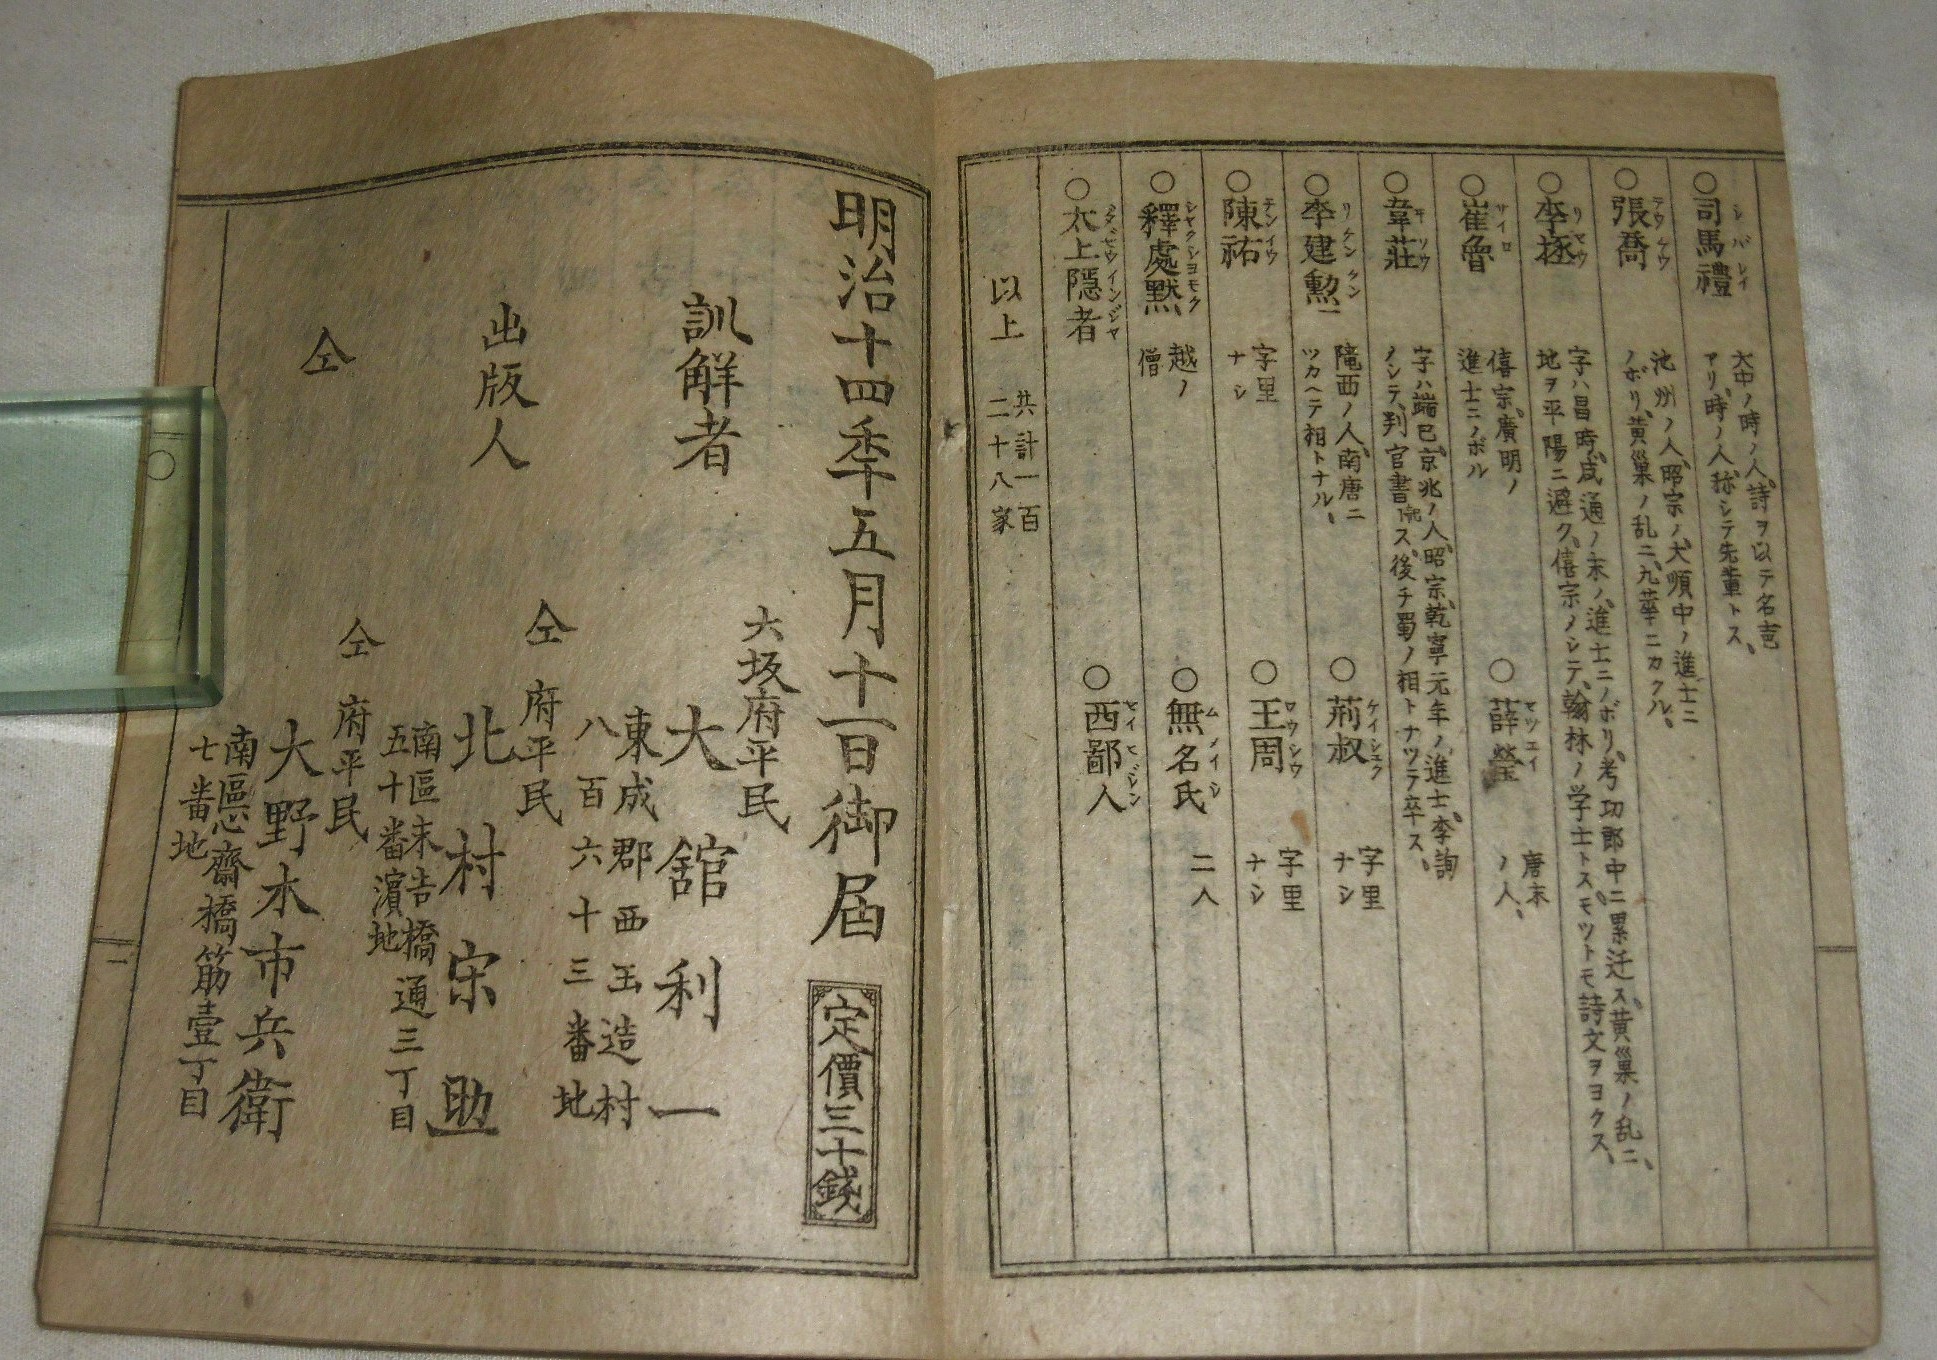 ○司馬禮 シバレイ
大中ノ時ノ人、詩ヲ以テ名壱
アリ、時ノ人、称シテ先輩トス、
○張喬 テウケウ
池州ノ人、昭宗ノ大順中ノ進士ニ
ノボリ、黄巢ノ乱ニ、九華ニカクル、
○李拯
字ハ昌時、咸通ノ末ノ、進士ニノボリ、考功郎中ニ累迁ス、黄巢ノ乱ニ、
地ヲ平陽ニ避ク、僖宗ノシテ、翰林ノ学士トス、モツトモ詩文ヲヨクス、
○崔魯 サイロ
僖宗、廣明ノ
進士ニノボル
○薛瑩 セツエイ
唐末
ノ人、
○韋莊 ヰソウ
字ハ端已、京兆ノ人、昭宗、乾寧元年ノ、進士、李詢
ノシテ、判官書記ス、後チ蜀ノ相トナツラ卒ス、
○李建勲 リケンクン
隴西ノ人、南唐ニ
ツカヘテ相トナル、
○荊叔 ケイシユク
字里
ナシ
○陳祐 チンイウ
字里
ナシ
○王周 ワウシウ
字里
ナシ
○釋處黙 シヤクシヨモク
越ノ
僧
○無名氏 ムメイシ
二人
○太上隱者 タイゼウインジヤ
○西鄙人 セイヒジン
以上
共計一百
二十八家
明治十四季五月十一日御届
定價三十錢
訓解者
大坂府平民
大舘利一
東成郡西玉造村
八百六十三番地
出版人
仝府平民
北村宋助
南區末吉橋通三丁目
五十番濱地
仝
仝府平民
大野木市兵衛
南區心齋橋筋壹丁目
七番地